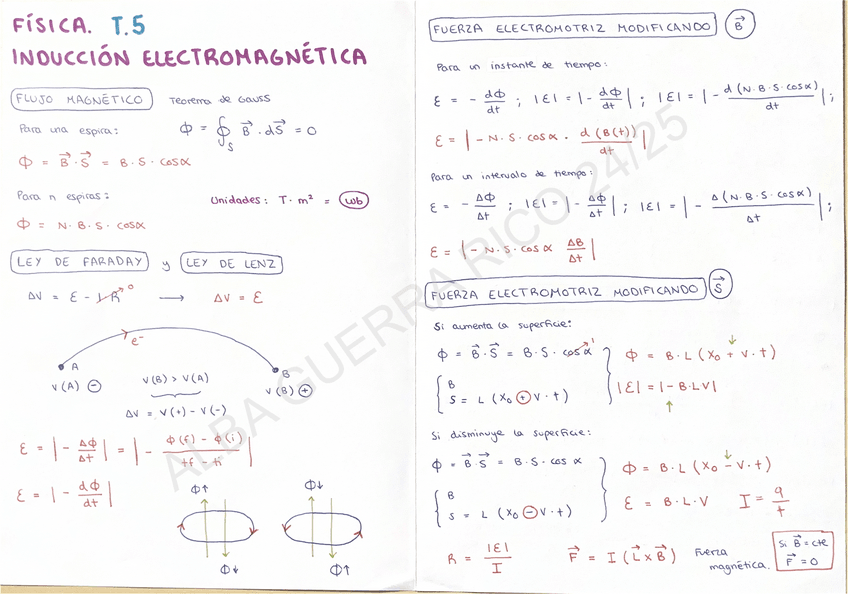 FÍSICA. T.5
INDUCCIÓN ELECTROMAGNÉTICA
FLUJO MAGNÉTICO Teorema de Gauss
Para una espira: Φ = ∮s B⃗ · dS⃗ = 0
Φ = B⃗ · S⃗ = B · S · cosα
Para n espiras: Unidades: T · m² = wb
Φ = N · B · S · cosα
LEY DE FARADAY y LEY DE LENZ
ΔV = ε - I R⁰ → ΔV = ε
e⁻
A B
V(A) ⊖ V(B) > V(A) V(B) ⊕
ΔV = V(+) - V(-)
ε = | - ΔΦ/Δt | = | - Φ(f) - Φ(i) / tf - ti |
ε = | - dΦ/dt |
Φ↑ Φ↓
Φ↓ Φ↑
FUERZA ELECTROMOTRIZ MODIFICANDO B⃗
Para un instante de tiempo:
ε = - dΦ/dt ; |ε| = | - dΦ/dt | ; |ε| = | - d(N·B·S·cosα)/dt | ;
ε = | - N · S · cosα · d(B(t))/dt |
Para un intervalo de tiempo:
ε = - ΔΦ/Δt ; |ε| = | - ΔΦ/Δt | ; |ε| = | - Δ(N·B·S·cosα)/Δt | ;
ε = | - N · S · cosα ΔB/Δt |
FUERZA ELECTROMOTRIZ MODIFICANDO S⃗
Si aumenta la superficie:
Φ = B⃗ · S⃗ = B · S · cosα¹ Φ = B · L (X₀ + V · t)
B
S = L (X₀ ⊕ V · t) |ε| = | - B · L V |
Si disminuye la superficie:
Φ = B⃗ · S⃗ = B · S · cos α Φ = B · L (X₀ - V · t)
B
S = L (X₀ ⊖ V · t) ε = B · L · V I = q/t
R = |ε|/I F⃗ = I (L⃗ x B⃗) Fuerza magnética. Si B⃗ = cte
F⃗ = 0
ALBA GUERRA RICO 24/25